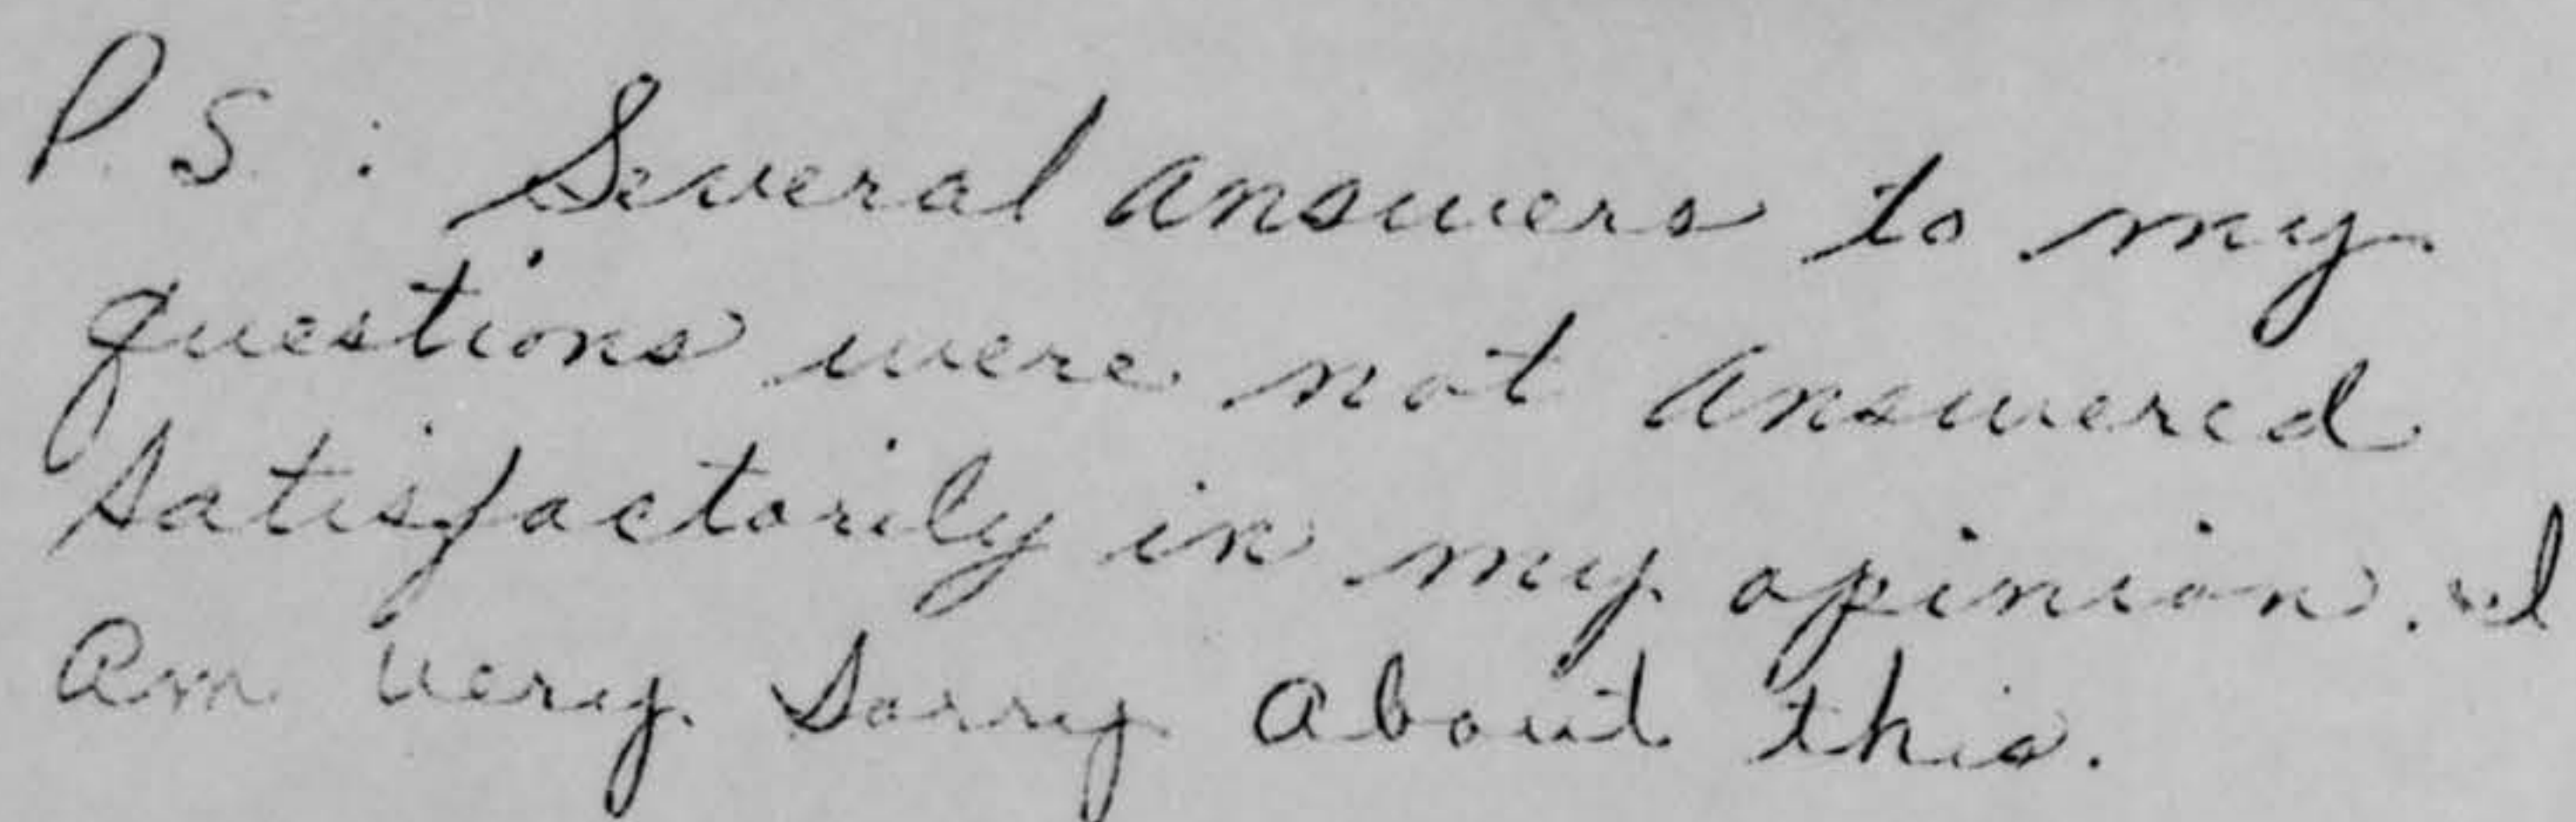 P.S.: Several answers to my
questions were not answered
satisfactorily in my opinion. I
am very sorry about this.